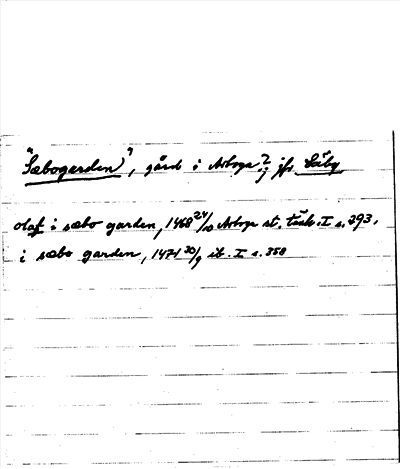 "Sæbogarden", gård i Arboga?; jfr Säby
olaf i sæbo garden, 1468 24/10 Arboga st. tänk. I s. 293.
i sæbo garden, 1471 30/9 ib. I s. 358